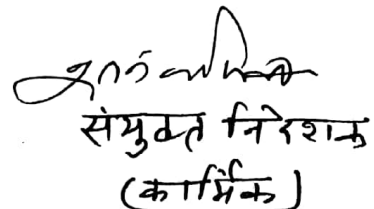 संयुक्त निदेशक
(कार्मिक)